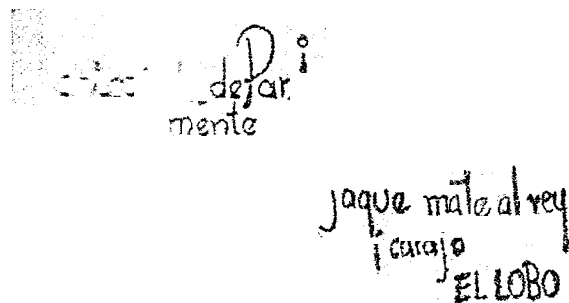 de Par
mente
jaque mate al rey
¡carajo
EL LOBO